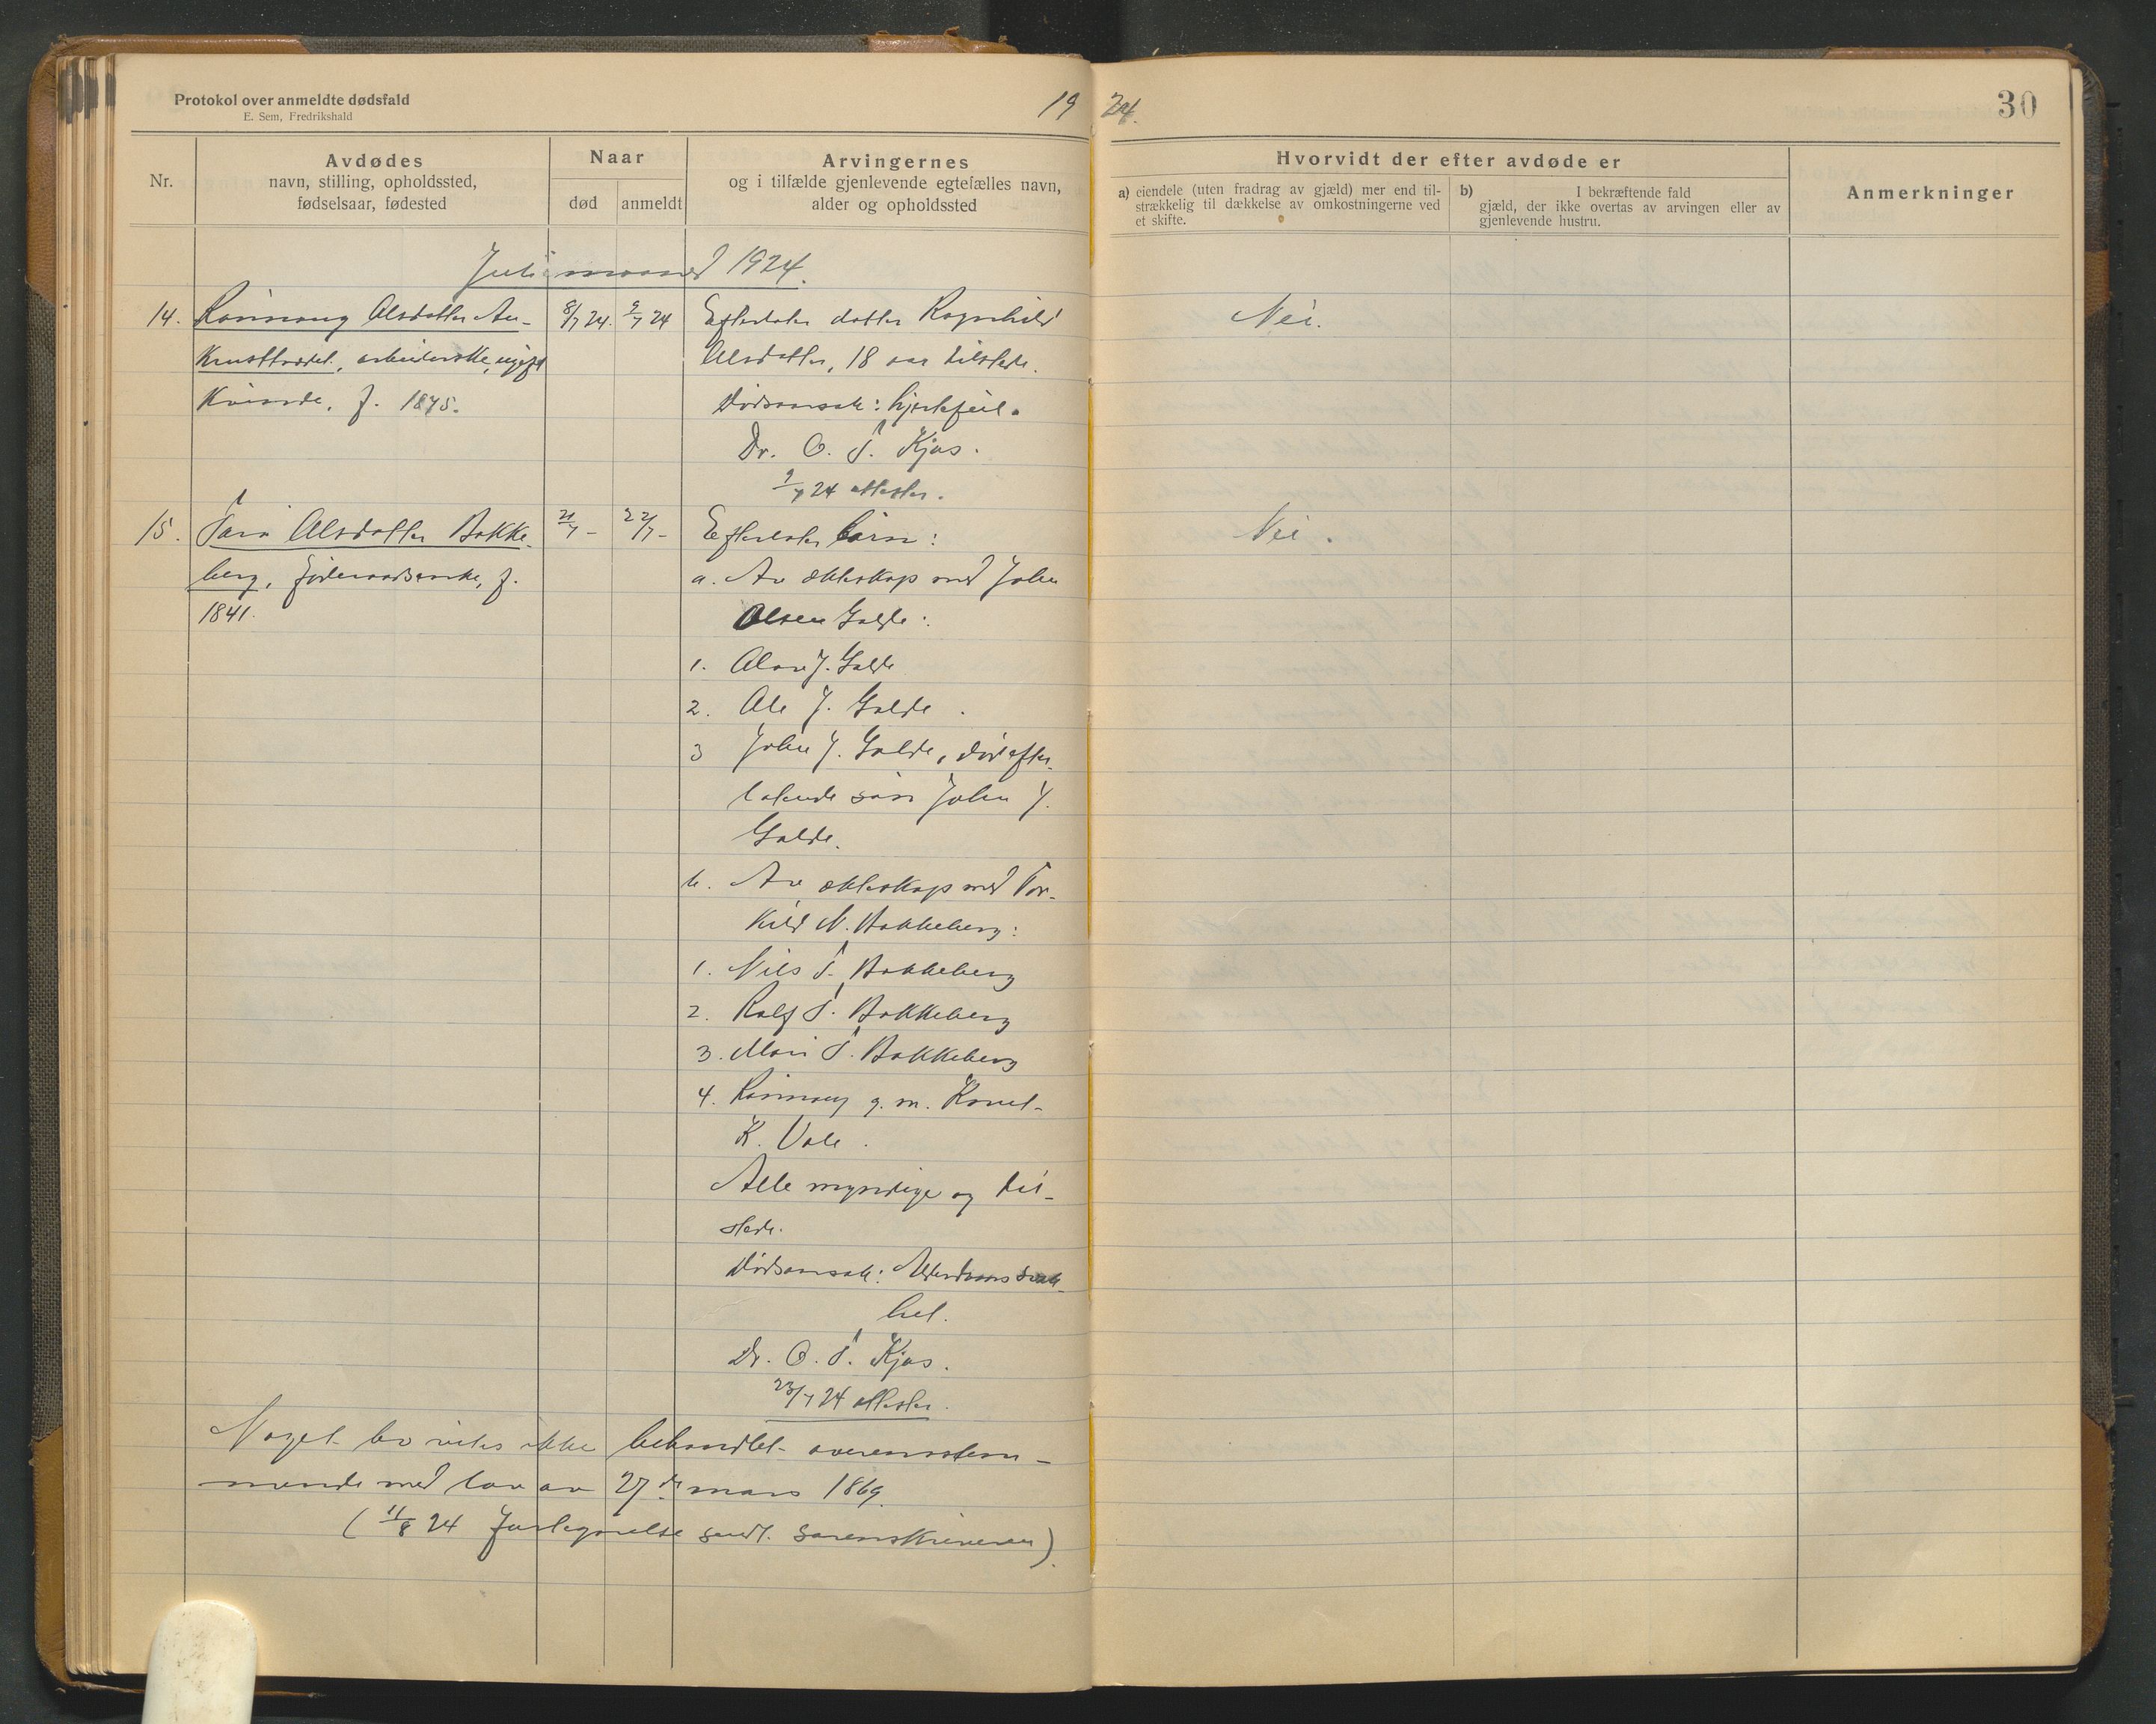 Protokol over anmeldte dødsfald
E. Sem, Fredrikshald
1924.
30
Nr.
Avdødes
navn, stilling, opholdssted,
fødselsaar, fødested
Naar
død
anmeldt
Arvingernes
og i tilfælde gjenlevende egtefælles navn,
alder og opholdssted
Hvorvidt der efter avdøde er
a) eiendele (uten fradrag av gjæld) mer end til-
strækkelig til dækkelse av omkostningerne ved
et skifte.
b) I bekræftende fald
gjæld, der ikke overtas av arvingen eller av
gjenlevende hustru.
Anmerkninger
Juli maaned 1924.
14. Rönnaug Olsdatter
arbeiderske, ugift
Kvinde, f. 1875.
8/7 24.
9/7 24
Efterlater datter Ragnhild
Olsdatter, 18 aar tilstede.
Dödsaarsak: hjertefeil.
Dr. O. T. Kjos.
9/7 24 attester.
Nei.
15. Olsdatter Bakke-
berg, föderaadsenke, f.
1841.
21/7 -
22/7 -
Efterlater börn:
a. Av ekteskap med John
Olsen Galde:
1. J. Galde
2. Ole J. Galde.
3 John J. Galde, död efter-
latende sön John J.
Galde.
b. Av ekteskap med Tor-
kild N. Bakkeberg:
1. Nils T. Bakkeberg
2. Rolf T. Bakkeberg
3. Mari T. Bakkeberg
4. Rönnaug g. m. Knut
K. Vole.
Alle myndige og til-
stede.
Dödsaarsak: Alderdomssvak-
het.
Dr. O. T. Kjos.
23/7 24 attester.
Nei.
Noget bo vites ikke behandlet overensstem-
mende med lov av 27de mars 1869.
(11/8 24 fortegnelse sendt sorenskriveren).